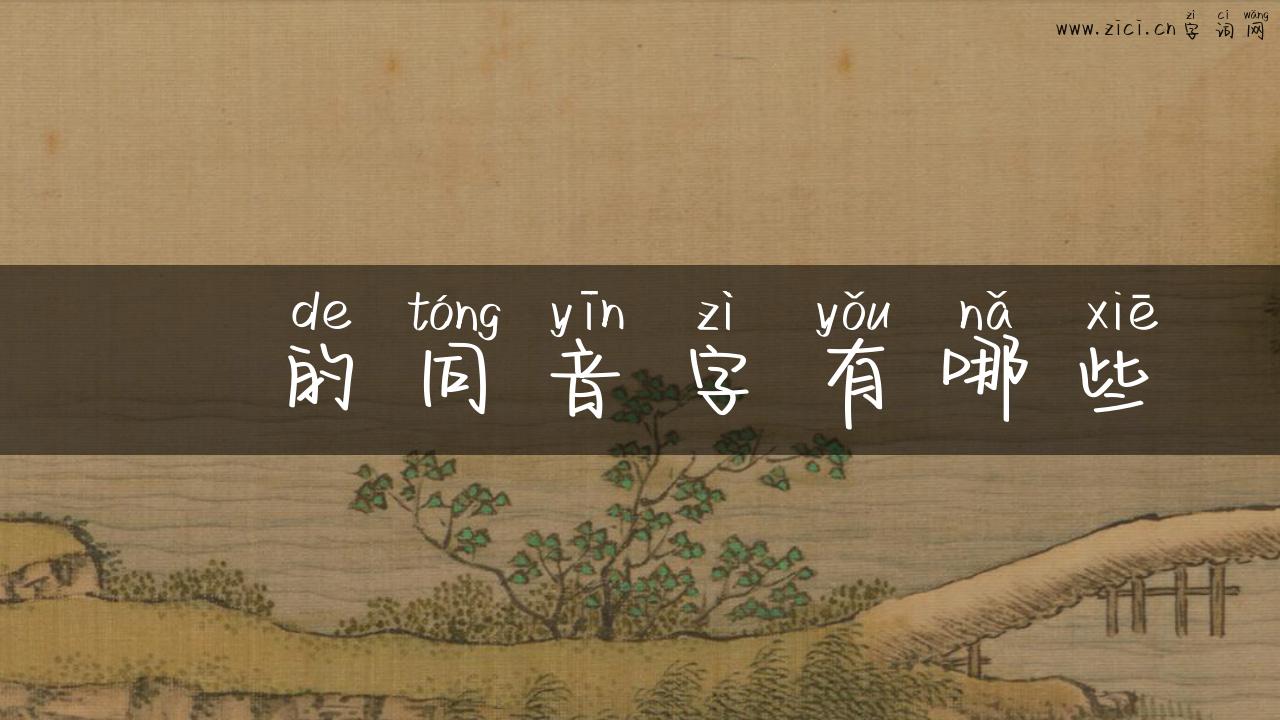 zì cí wǎng
www.zici.cn 字词网
de tóng yīn zì yǒu nǎ xiē
的同音字有哪些